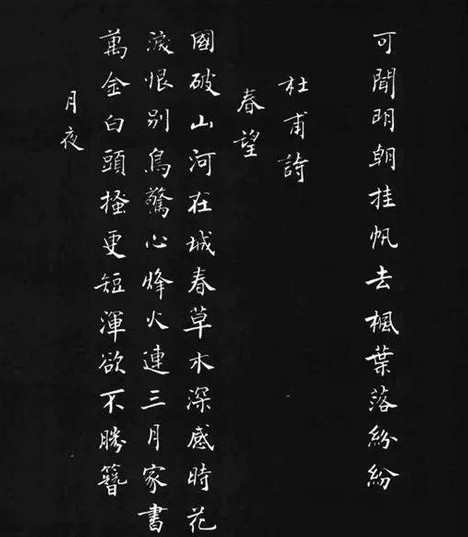 可聞明朝挂帆去楓葉落紛紛
杜甫詩
春望
國破山河在城春草木深感時花
淚恨别鳥驚心烽火連三月家書
萬金白頭搔更短渾欲不勝簪
月夜